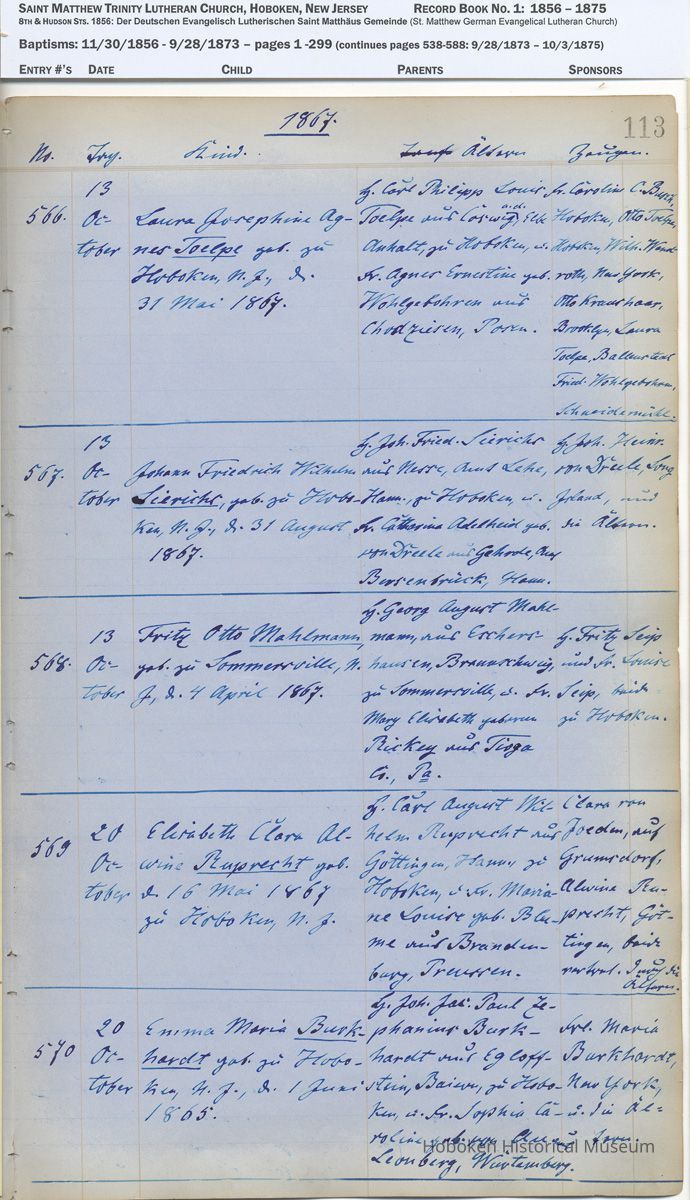 SAINT MATTHEW TRINITY LUTHERAN CHURCH, HOBOKEN, NEW JERSEY RECORD BOOK NO. 1: 1856 – 1875
8TH & HUDSON STS. 1856: Der Deutschen Evangelisch Lutherischen Saint Matthäus Gemeinde (St. Matthew German Evangelical Lutheran Church)
Baptisms: 11/30/1856 - 9/28/1873 – pages 1 -299 (continues pages 538-588: 9/28/1873 – 10/3/1875)
ENTRY #'S DATE CHILD PARENTS SPONSORS
1867.
113
No. Tag. Kind. Ältern Zeugen.
566.
13
Oc-
tober
Laura Josephine Ag-
nes Toelpe geb. zu
Hoboken, N. J., d.
31 Mai 1867.
H. Carl Philipp Louis
Toelpe aus Coswig, a.d. Elbe
Anhalt, zu Hoboken, u.
Fr. Agnes Ernestine geb.
Wohlgebohren aus
Chodziesen, Posen.
Fr. Caroline C. Burk,
Hoboken, Otto Toelpe,
Hoboken, Wilh. Wend-
roth, New York,
Otto Kraushaar,
Brooklyn, Laura
Toelpe, Ballenstedt
Fried. Wohlgebohren,
Schneidemühl.
567.
13
Oc-
tober
Johann Friedrich Wilhelm
Sierichs, geb. zu Hobo-
ken, N. J., d. 31 August
1867.
H. Joh. Fried. Sierichs
aus Nesse, Amt Lehe,
Hann., zu Hoboken, u.
Fr. Catharina Adelheid geb.
von Dreele aus Gehrde, Amt
Bersenbrück, Hann.
H. Joh. Heinr.
von Dreele, Long
Island, und
die Ältern.
568.
13
Oc-
tober
Fritz Otto Mahlmann,
geb. zu Sommersville, N.
J., d. 4 April 1867.
H. Georg August Mahl-
mann, aus Eschers-
hausen, Braunschweig,
zu Sommersville, u. Fr.
Mary Elisabeth geboren
Rickey aus Tioga
Co., Pa.
H. Fritz Seip
und Fr. Louise
Seip, beide
zu Hoboken.
569
20
Oc-
tober
Elisabeth Clara Al-
wine Ruprecht geb.
d. 16 Mai 1867
zu Hoboken, N. J.
H. Carl August Wil-
helm Ruprecht aus
Göttingen, Hann., zu
Hoboken, u. Fr. Maria-
ne Louise geb. Blu-
me aus Branden-
burg, Preussen.
Clara von
Joeden, auf
Grumsdorf,
Alwina Ru-
precht, Göt-
tingen, beide
vertret. durch die
Ältern.
570
20
Oc-
tober
Emma Maria Burk-
hardt geb. zu Hobo-
ken, N. J., d. 1 Juni
1865.
H. Joh. Jac. Paul Ze-
phanius Burk-
hardt aus Egloff-
stein, Baiern, zu Hobo-
ken, u. Fr. Sophia Ca-
roline geb.
Leonberg, Würtemberg.
Frl. Maria
Burkhardt,
New York,
u. die Äl-
tern.
Hoboken Historical Museum